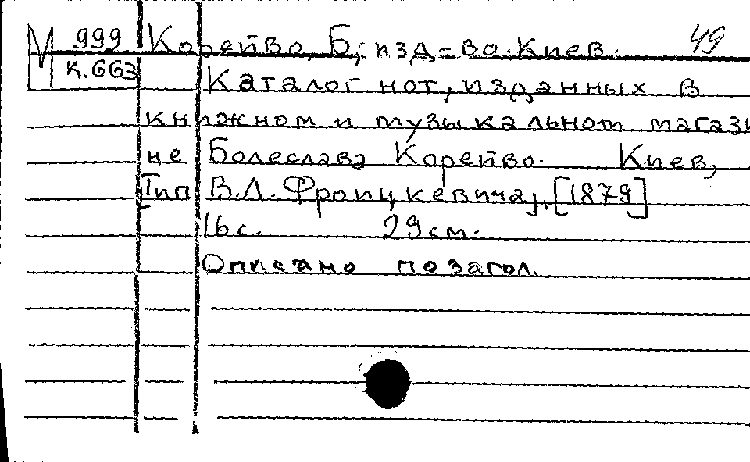 М 999 Корейво, Б; изд-во. Киев. 49
К.663 Каталог нот, изданных в
книжном и музыкальном магази
не Болеслава Корейво. Киев,
[Тип В.Л. Фронцкевича], [1879]
16с. 29см.
Описано по загол.